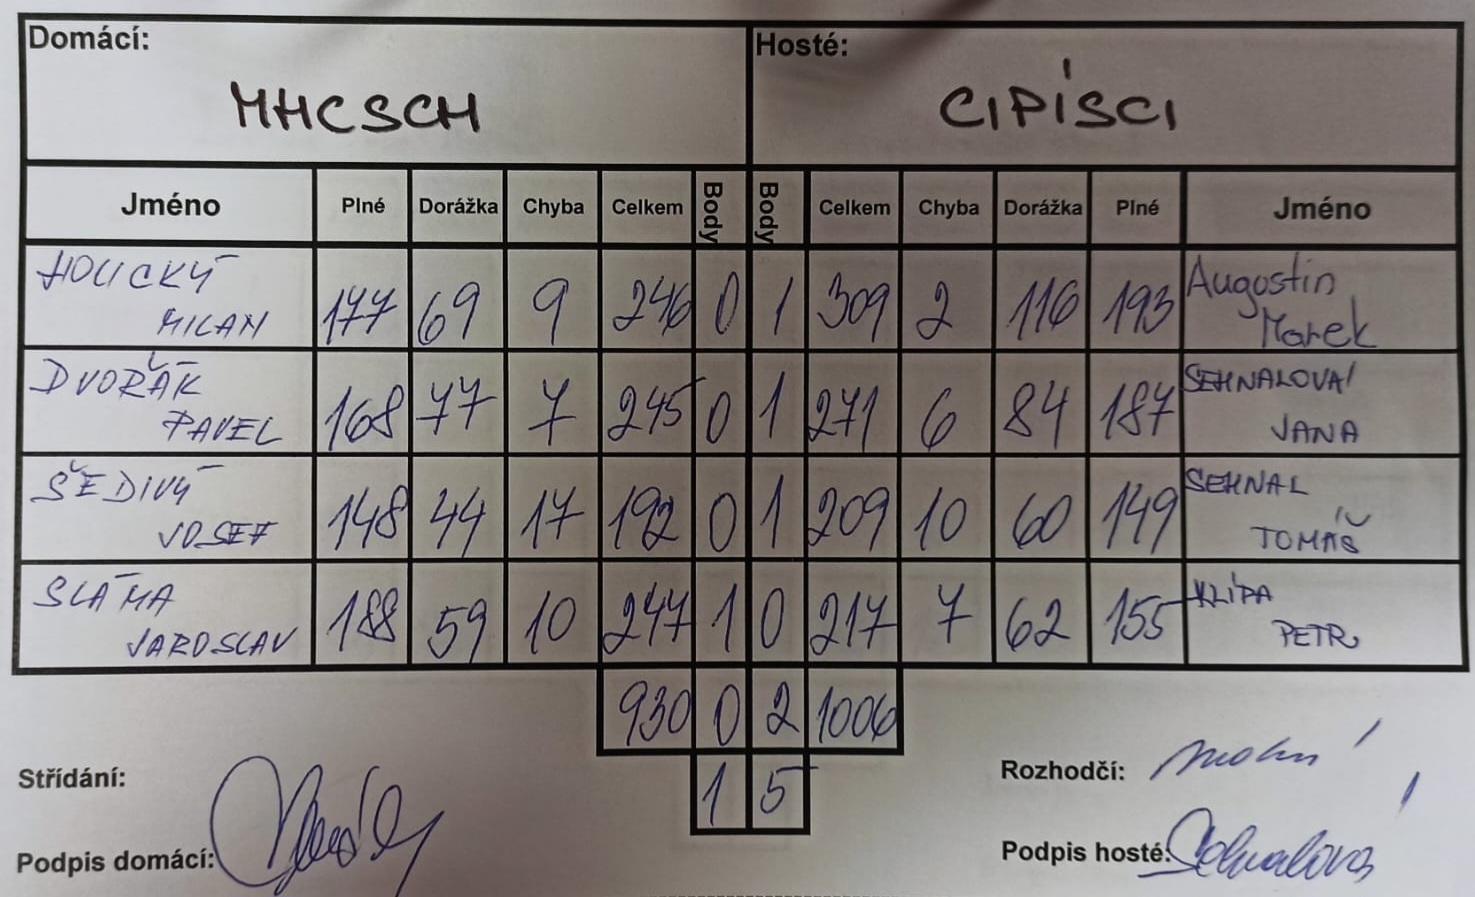 Domácí: Hosté:
MHCSCH CIPÍSCI
Jméno Plné Dorážka Chyba Celkem Body Body Celkem Chyba Dorážka Plné Jméno
HOLICKÝ MILAN 177 69 9 246 0 1 309 2 116 193 Augustin Marek
DVOŘÁK PAVEL 168 77 7 245 0 1 271 6 84 187 SEHNALOVÁ JANA
ŠEDIVÝ JOSEF 148 44 17 192 0 1 209 10 60 149 SEHNAL TOMÁŠ
SLÁMA JAROSLAV 188 59 10 247 1 0 217 7 62 155 KLÍPA PETR
930 0 2 1006
1 5
Střídání: Rozhodčí:
Podpis domácí: Podpis hosté: Sehnalová